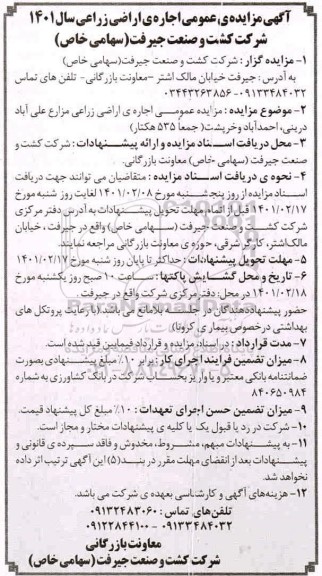 آگهی مزایده ی عمومی اجاره ی اراضی زراعی سال ۱۴۰۱
شرکت کشت و صنعت جیرفت (سهامی خاص)
۱- مزایده گزار : شرکت کشت و صنعت جیرفت(سهامی خاص)
به آدرس : جیرفت خیابان مالک اشتر -معاونت بازرگانی- تلفن های تماس
۰۹۱۳۳۴۸۴۰۳۲- ۰۳۴۴۳۲۶۳۸۵۶
۲- موضوع مزایده : مزایده عمومی اجاره ی اراضی زراعی مزارع علی آباد
درینی، احمدآباد وخرپشت( جمعاً ۵۳۵ هکتار)
۳- محل دریافت اسناد مزایده و ارائه پیشنهادات : شرکت کشت و
صنعت جیرفت (سهامی خاص) معاونت بازرگانی.
۴- نحوه ی دریافت اسناد مزایده : متقاضیان می توانند جهت دریافت
اسناد مزایده از روز پنجشنبه مورخ ۱۴۰۱/۰۲/۰۸ لغایت روز شنبه مورخ
۱۴۰۱/۰۲/۱۷ قبل از اتمام مهلت تحویل پیشنهادات به آدرس دفتر مرکزی
شرکت کشت و صنعت جیرفت (سهامی خاص) واقع در جیرفت ، خیابان
مالک اشتر، کارگر شرقی، حوزه ی معاونت بازرگانی مراجعه نمایند.
۵- مهلت تحویل پیشنهادات : حداکثر تا پایان روز شنبه مورخ ۱۴۰۱/۰۲/۱۷
۶- تاریخ و محل گشایش پاکتها : ساعت ۱۰ صبح روز یکشنبه مورخ
۱۴۰۱/۰۲/۱۸ در محل: دفتر مرکزی شرکت واقع در جیرفت
حضور پیشنهاددهندگان در جلسه بلامانع می باشد.(با رعایت پروتکل های
بهداشتی درخصوص بیماری کرونا)
۷- مدت قرارداد : در اسناد مزایده و قرارداد فیمابین قید شده است.
۸- میزان تضمین فرآیند اجرای کار: برابر ۱۰٪ مبلغ پیشنهادی بصورت
ضمانتنامه بانکی معتبر و یا واریز بحساب شرکت در بانک کشاورزی به شماره
۸۴۰۶۵۰۹۸۴
۹- میزان تضمین حسن اجرای تعهدات : ۱۰٪ مبلغ کل پیشنهاد قیمت.
۱۰- شرکت در رد یا قبول یک یا کلیه ی پیشنهادات مختار و مجاز است.
۱۱- به پیشنهادات مبهم، مشروط، مخدوش و فاقد سپرده ی قانونی و
پیشنهادات بعد از انقضای مهلت مقرر در بند(۵) این آگهی ترتیب اثر داده
نخواهد شد.
۱۲- هزینه های آگهی و کارشناسی بعهده ی شرکت می باشد.
تلفن های تماس : ۰۹۱۳۲۴۸۳۰۶۰
۰۹۱۳۳۴۸۴۰۳۲ - ۰۹۱۲۲۸۴۴۱۰۰
معاونت بازرگانی
شرکت کشت و صنعت جیرفت (سهامی خاص)